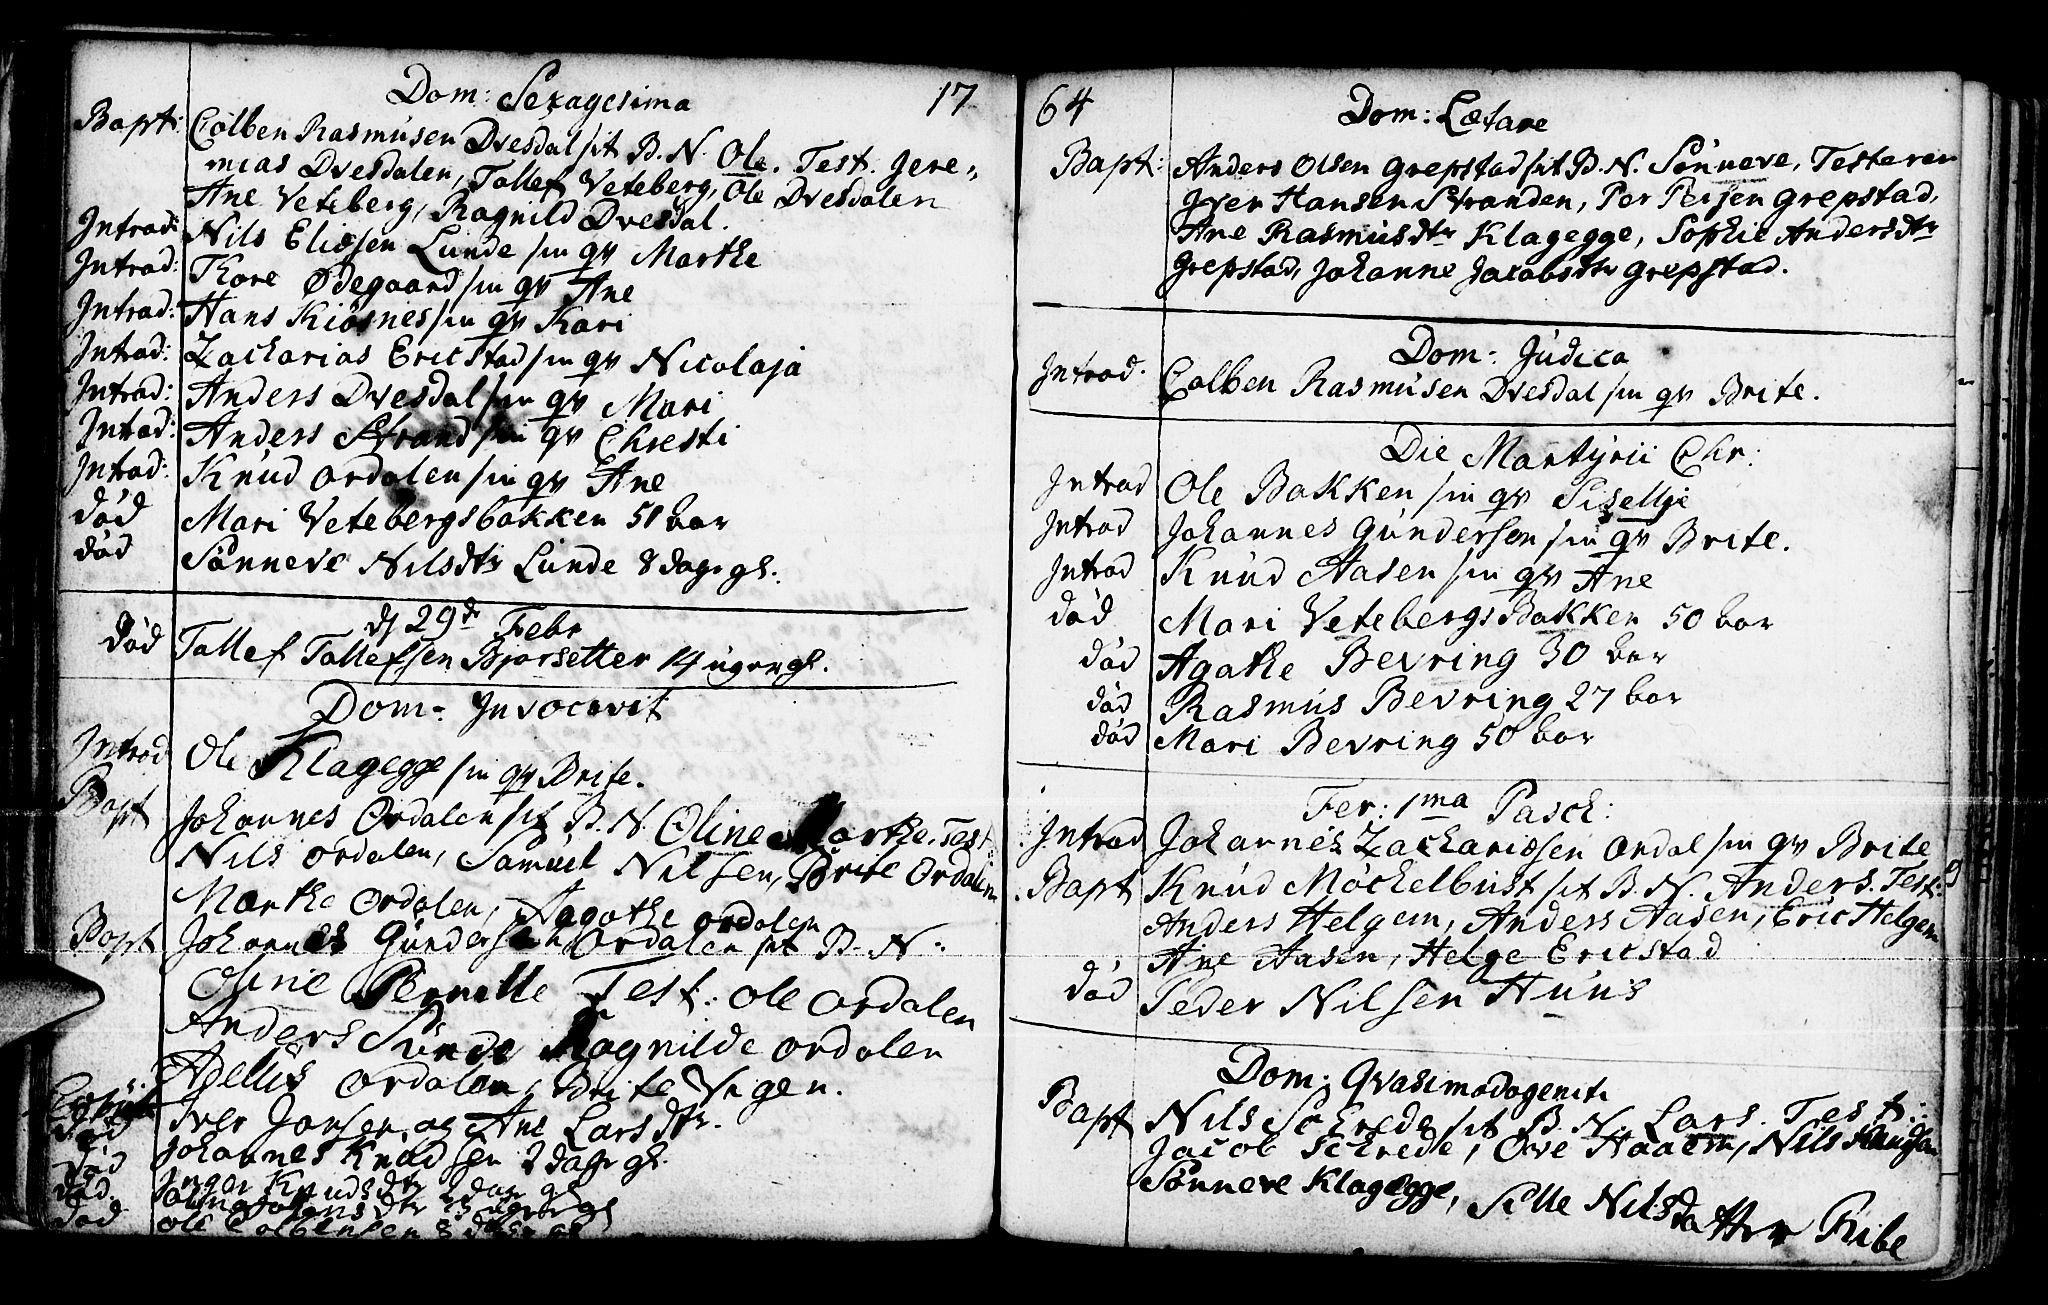 Dom: Sexagesima 17
Bapt: Colben Rasmusen Dvesdal sit B. N. Ole. Test. Jere„
mias Dvesdalen, Tallef Veteberg, Ole Dvesdalen
Ane Veteberg, Ragnild Dvesdal.
Introd: Nils Eliæsen Lunde sin qv Marthe
Introd: Thore Ødegaard sin qv Ane
Introd: Hans Kiøsnes sin qv Kari
Introd: Zacharias Ericstad sin qv Nicolaja
Introd: Anders Dvesdal sin qv Mari
Introd: Anders Strand sin qv Chresti
Introd: Knud Ordalen sin qv Ane
død Mari Vetebergsbakken
død Sønneve Nilsdtr Lunde 8 dage gl.
d 29de Febr
død Tallef Tallefsen Bjørsetter 14 ug gl.
Dom: Invocavit
Introd Ole Klagegge sin qv Brite.
Bapt Johannes Ordalen sit B. N. Oline Marthe. Test
Nils Ordalen, Samuel Nilsen, Brite Ordalen
Marthe Ordalen, Agathe Ordalen
Bapt Johannes Gundersen Ordalen sit B. N:
Oline Pernille Test: Ole Ordalen
Anders Sunde Ragnilde Ordalen
Ordalen, Brite
Iver Jansen og Ane Larsdtr.
død Johannes Knudsen 2 dage gl.
død Inger Knudsdtr
død
død Ole Colbensen 8 dage gl
64 Dom: Lætare
Bapt: Anders Olsen Grepstad sit B. N. Sønneve, Testerer
Iver Hansen Stranden, Per Persen Grepstad,
Ane Rasmusdtr Klagegge, Sophie Andersdtr
Grepstad, Johanne Jacobsdtr Grepstad.
Dom: Judica
Introd. Colben Rasmusen Dvesdal sin qv Brite.
Die Martyrii Chr:
Introd Ole Bakken sin qv Sisellje
Introd Johannes Gundersen sin qv Brite.
Introd Knud Aasen sin qv Ane
død Mari Vetebergsbakken 50 aar
død Agathe Bevring 30 aar
død Rasmus Bevring 27 aar
død Mari Bevring 50 aar
Fer: 1ma Pasch:
Introd Johannes Zachariæsen Ordal sin qv Brite
Bapt Knud Møckelbust sit B. N. Anders. Test:
Anders Helgem, Anders Aasen, Eric Helgem
Ane Aasen, Helge Ericstad
død Peder Nilsen Huus
Dom: Qvasimodogeniti
Bapt Nils Schrede sit B. N. Lars. Test:
Jacob Schrede, Ove Haaem, Nils
Sønneve Klagegge, Sille Nilsdatter Ribe